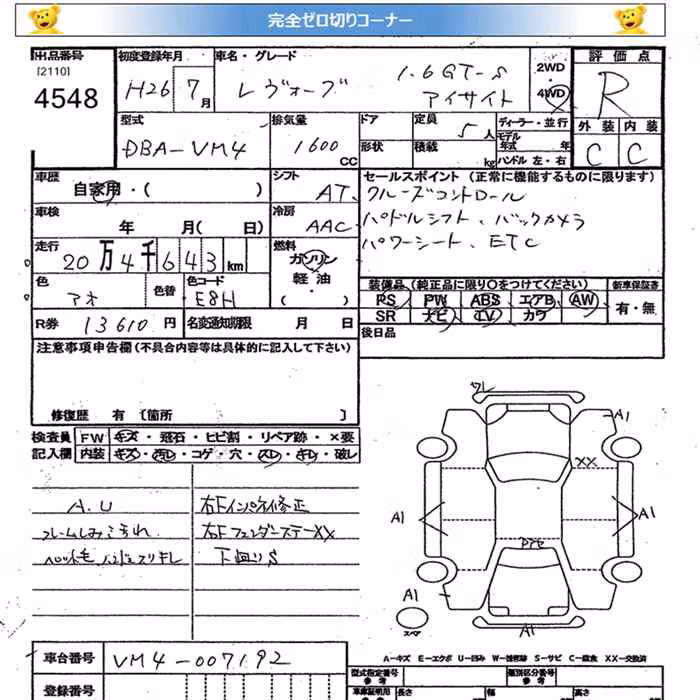 完全ゼロ切りコーナー
出品番号
[2110]
4548
初度登録年月
H26 7月
車名・グレード
レヴォーグ
1.6GT-S
アイサイト
2WD
4WD
評価点
R
外装 内装
C C
型式
DBA-VM4
排気量
1600
CC
ドア
形状
定員
5人
積載
kg
ディーラー・並行
モデル年式 年
ハンドル 左・右
車歴
自家用・( )
シフト
AT
セールスポイント (正常に機能するものに限ります)
クルーズコントロール
パドルシフト、バックカメラ
パワーシート、ETC
車検
年 月( 日)
冷房
AAC
走行
20万4千643km
燃料
ガソリン
軽油
( ・ )
色
アオ
色替
色コード
E8H
装備品 (純正品に限り○をつけてください)
新車保証書
PS PW ABS エアB AW
SR ナビ TV カワ
有・無
R券 13610円
名変通知期限 月 日
後日品
注意事項申告欄 (不具合内容等は具体的に記入して下さい)
修復歴 有 [箇所 ]
検査員
記入欄
FW キズ・飛石・ヒビ割・リペア跡・×要
内装 キズ・汚レ・コゲ・穴・スレ・キレ・破レ
A.U
フレームしみ汚れ
ペット毛
右Fインパネ修正
右Fフェンダーステー××
下回りS
ワレ
A1
××
A1
A1
A1
A1
A1
スペア
A-キズ E-エクボ U-凹み W-補修跡 S-サビ C-腐食 XX-交換済
車台番号
VM4-007192
登録番号
型式指定番号
参考
類別区分番号
車庫証明用
参考
長さ
幅
高さ